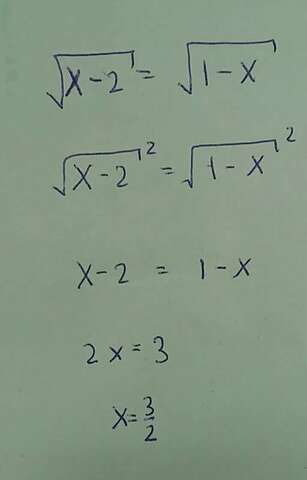 √(X-2) = √(1-X)
√(X-2)² = √(1-X)²
X-2 = 1-X
2X = 3
X = 3/2